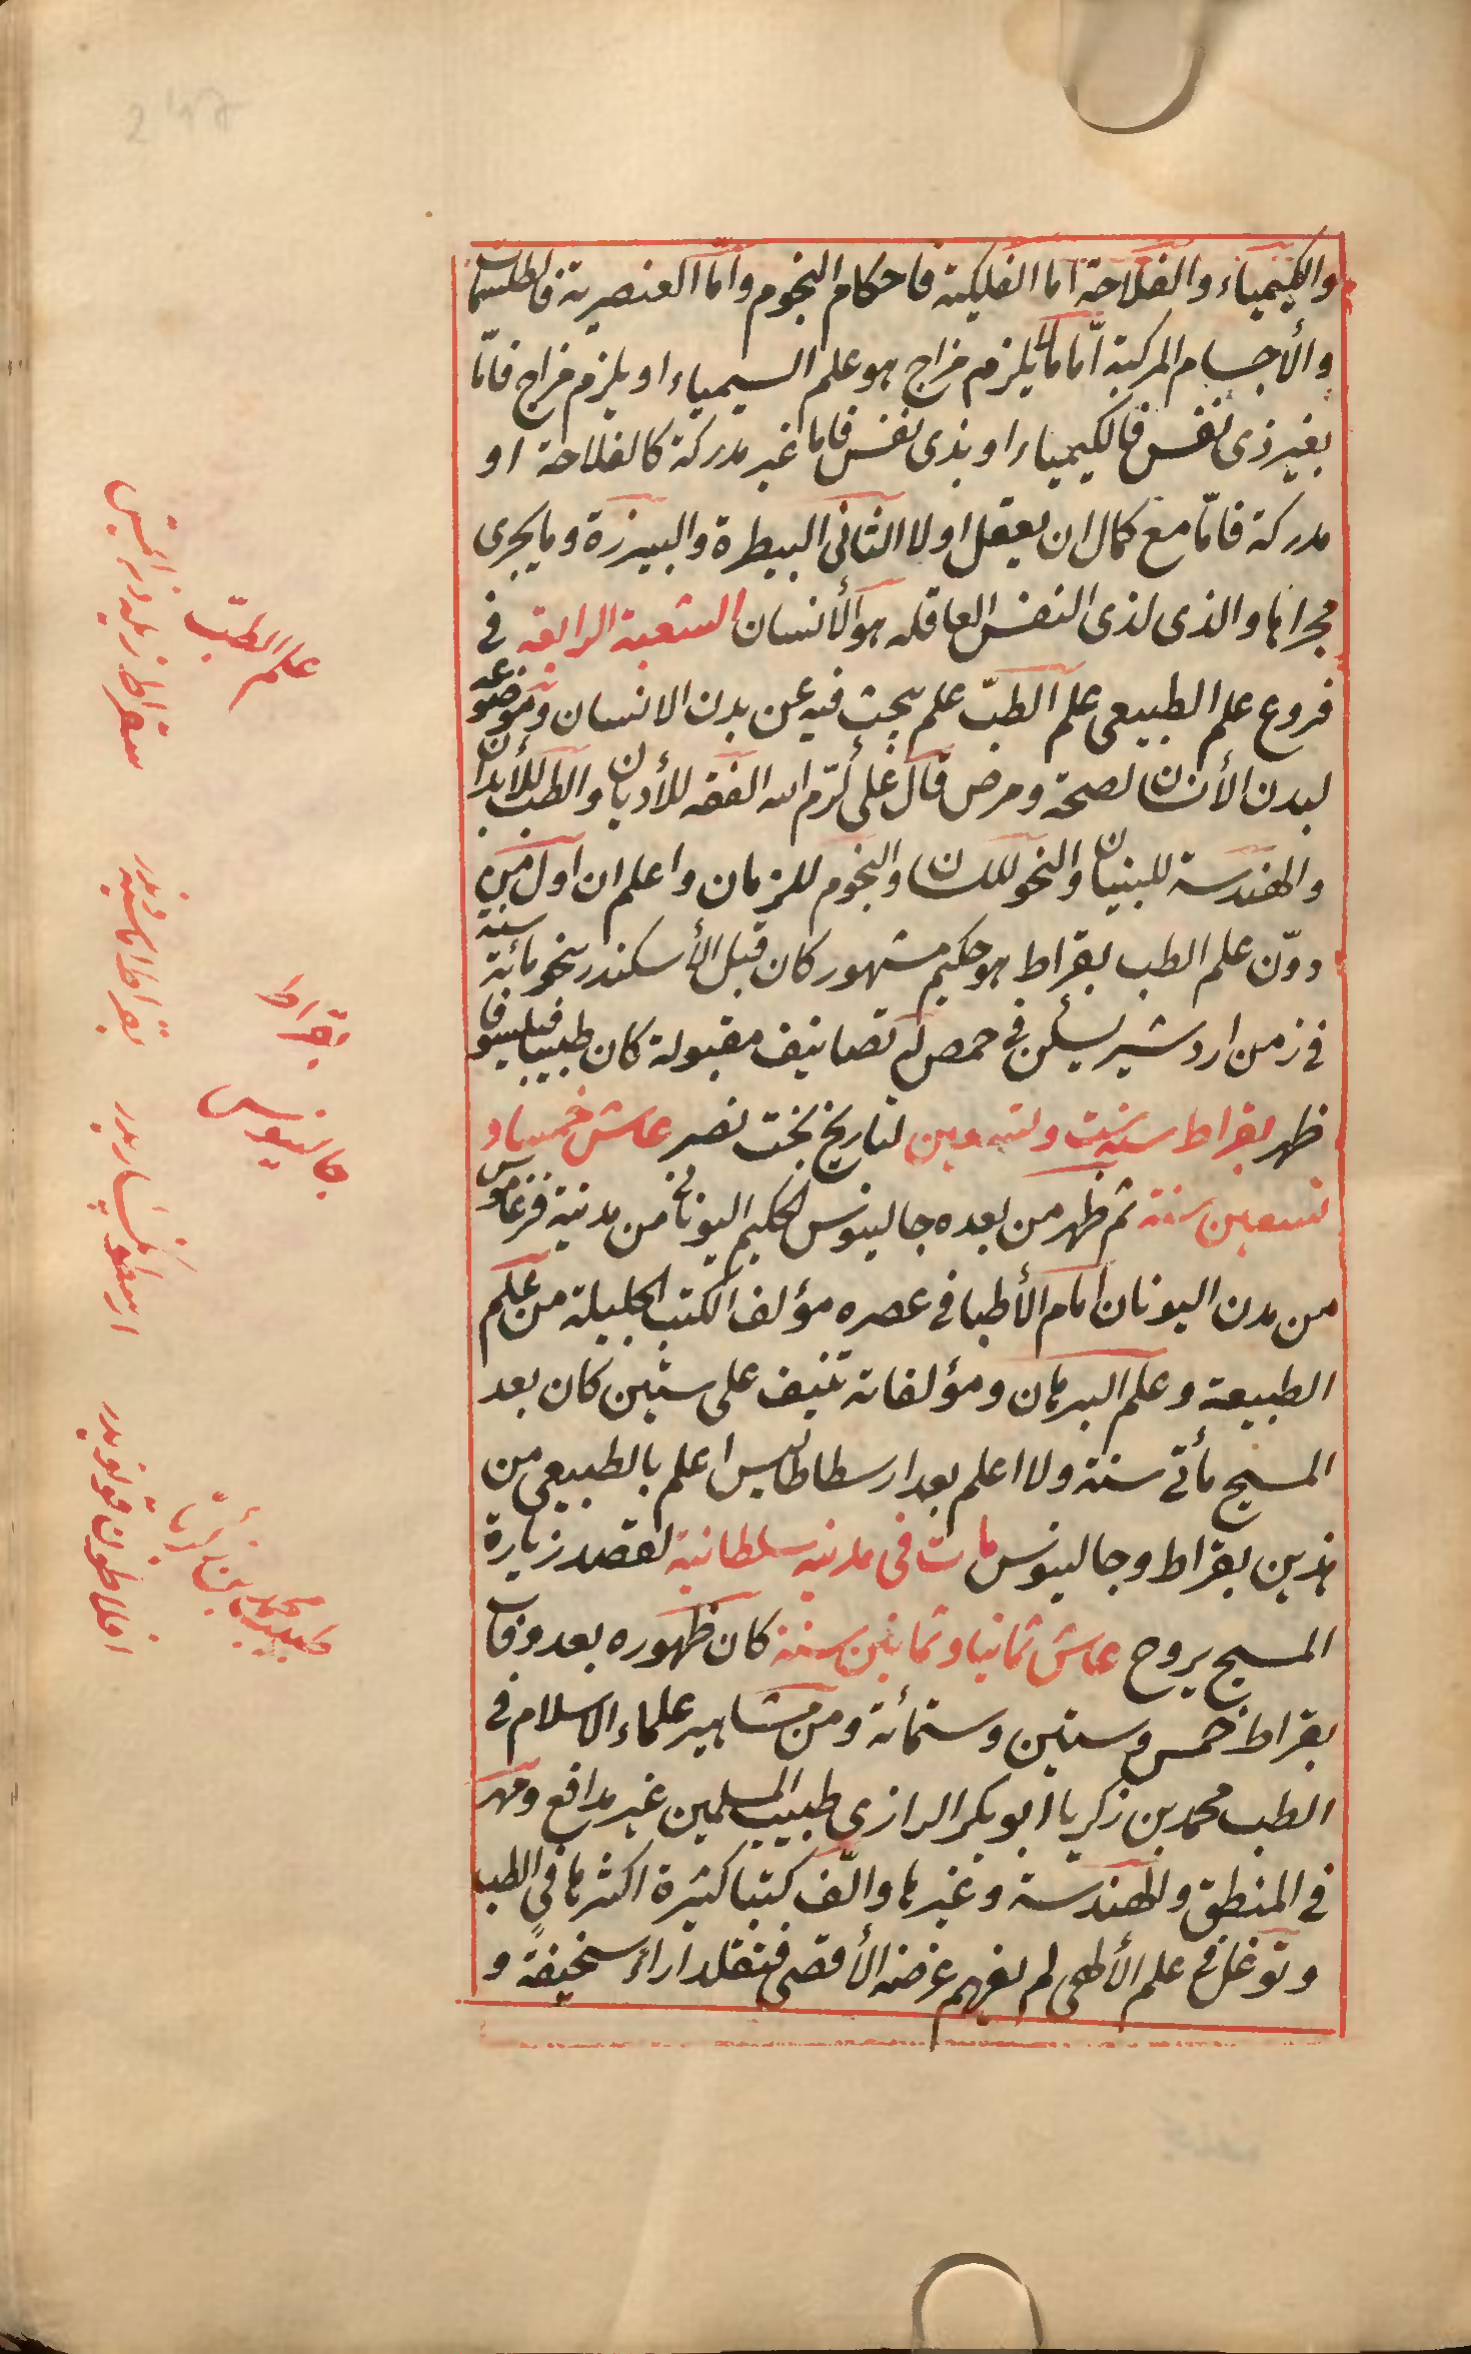 والكيمياء والفلاحة اما الفلكية فاحكام النجوم وامّا العنصرية فالطلسمات
والأجسام المركبة امّا ما لا يلزم مزاج هو علم السيمياء او يلزم مزاج فامّا
بغير ذى نفس فالكيمياء او بذى نفس فاما غير مدركة كالفلاحة او
مدركة فامّا مع كمال ان يعقل او لا الثانى البيطرة والبيزرة وما يجرى
مجراها والذى لذى النفس العاقلة هو الأنسان الشعبة الرابعة فى
فروع علم الطبيعى علم الطبّ علم يبحث فيه عن بدن الانسان وموضوعه
لبدن الأنسان لصحة ومرض قال على كرّم الله الفقه للأديان والطب للأبدان
والهندسة للبنيان والنحو للسان والنجوم للزمان واعلم ان اول من
دوّن علم الطب بقراط هو حكيم مشهور كان قبل الأسكندر بنحو مائة سنة
فى زمن اردشير يسكن فى حمص له تصانيف مقبولة كان طبيبا فيلسوفا
ظهر بقراط سنة ست وتسعين لتاريخ بخت نصر عاش خمسا و
تسعين سنة ثم ظهر من بعده جالينوس الحكيم اليونانى من مدينة فرغاموس
من مدن اليونان امام الأطبا فى عصره مؤلف الكتب الجليلة من علم
الطبيعة وعلم البرهان ومؤلفاته تنيف على ستين كان بعد
المسيح مأتى سنة ولا اعلم بعد ارسطاطاليس اعلم بالطبيعى من
هذين بقراط وجالينوس مات فى مدينه سلطانية لقصد زيارة
المسيح بروح عاش ثمانيا وثمانين سنة كان ظهوره بعد وفات
بقراط خمس وستين وستمائة ومن مشاهير علماء الاسلام فى
الطب محمد بن زكريا ابو بكر الرازى طبيب المسلمين غير مدافع ومهر
فى المنطق والهندسة وغيرها والّف كتبا كثيرة اكثرها فى الطب
وتوغل فى علم الألهى لم يفهم غرضه الأقصى فتقلد اراء سخيفة و
علم الطبّ
بقراط
جالينوس
طبيب محمد بن زكريّا